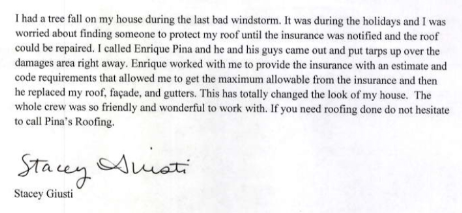 I had a tree fall on my house during the last bad windstorm. It was during the holidays and I was
worried about finding someone to protect my roof until the insurance was notified and the roof
could be repaired. I called Enrique Pina and he and his guys came out and put tarps up over the
damages area right away. Enrique worked with me to provide the insurance with an estimate and
code requirements that allowed me to get the maximum allowable from the insurance and then
he replaced my roof, façade, and gutters. This has totally changed the look of my house.  The
whole crew was so friendly and wonderful to work with. If you need roofing done do not hesitate
to call Pina's Roofing.
Stacey Giusti
Stacey Giusti